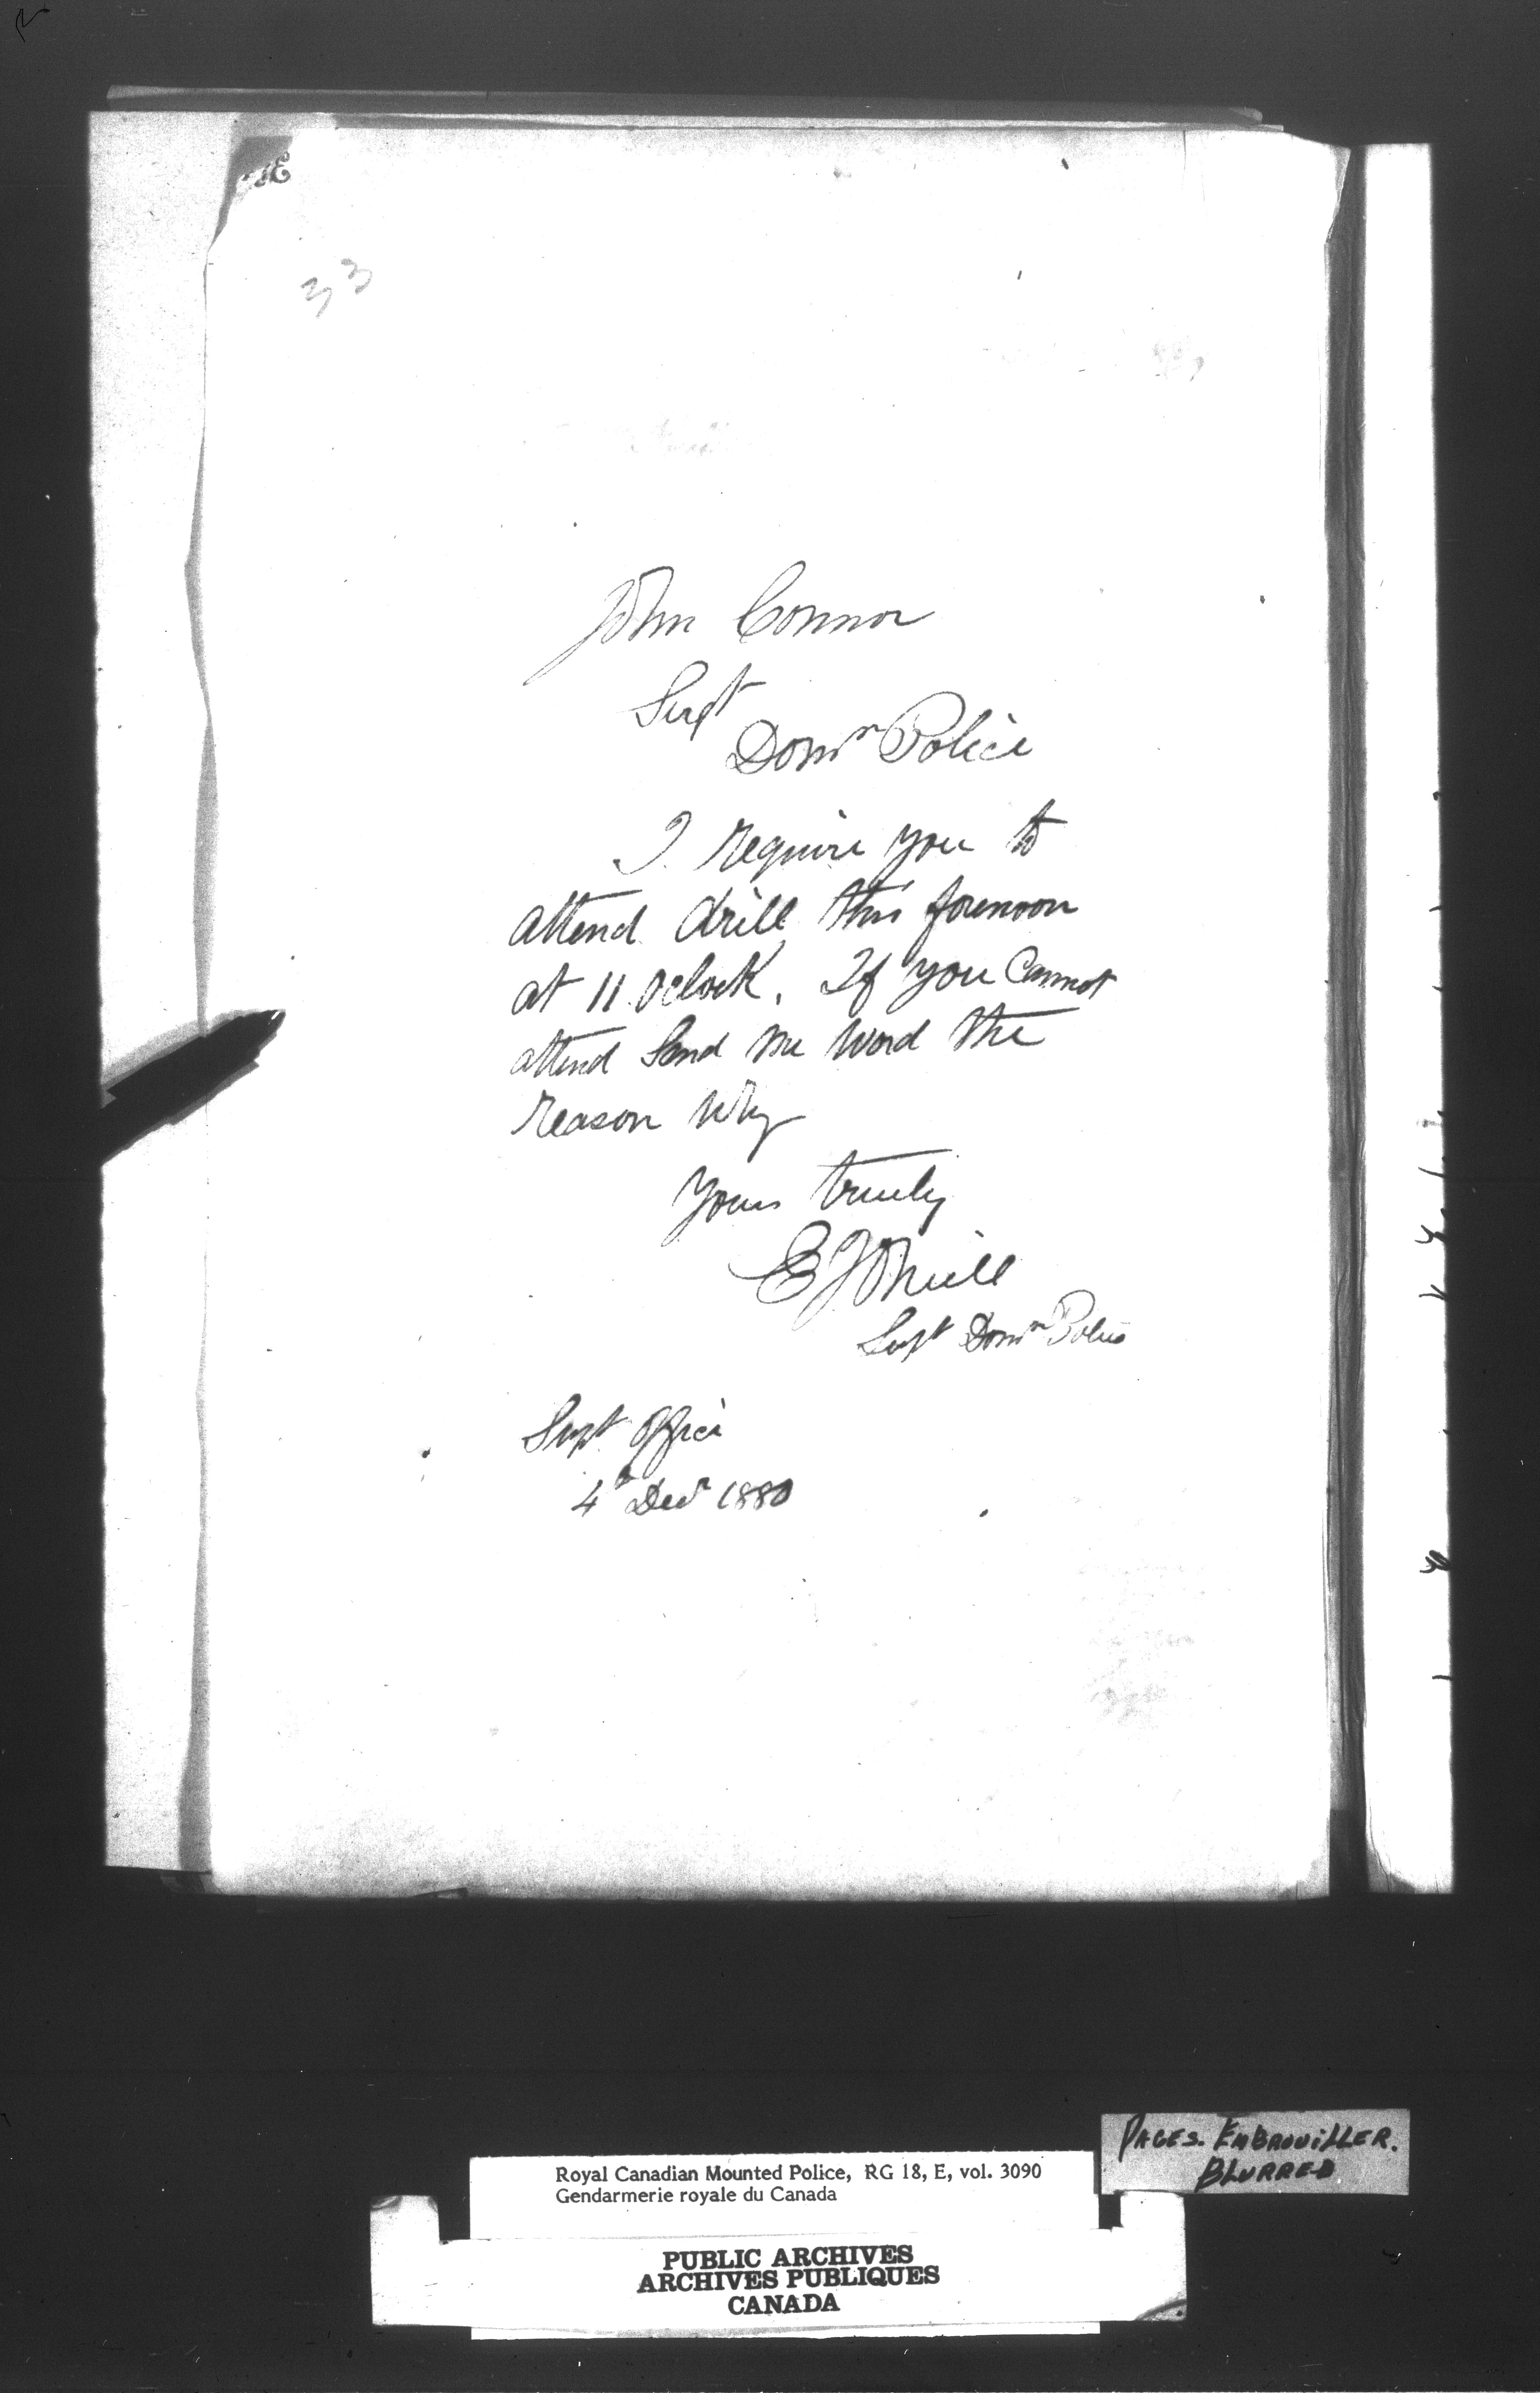 33
John Connor
Supt
Domn Police
I require you to
attend drill this forenoon
at 11 Oclock. If you Cannot
attend Send me word the
reason why
Yours truely
E J ONeill
Supt Domn Police
Supt Office
4th Decr 1880
PAGES. EMBROUILLER.
BLURRED
Royal Canadian Mounted Police, RG 18, E, vol. 3090
Gendarmerie royale du Canada
PUBLIC ARCHIVES
ARCHIVES PUBLIQUES
CANADA